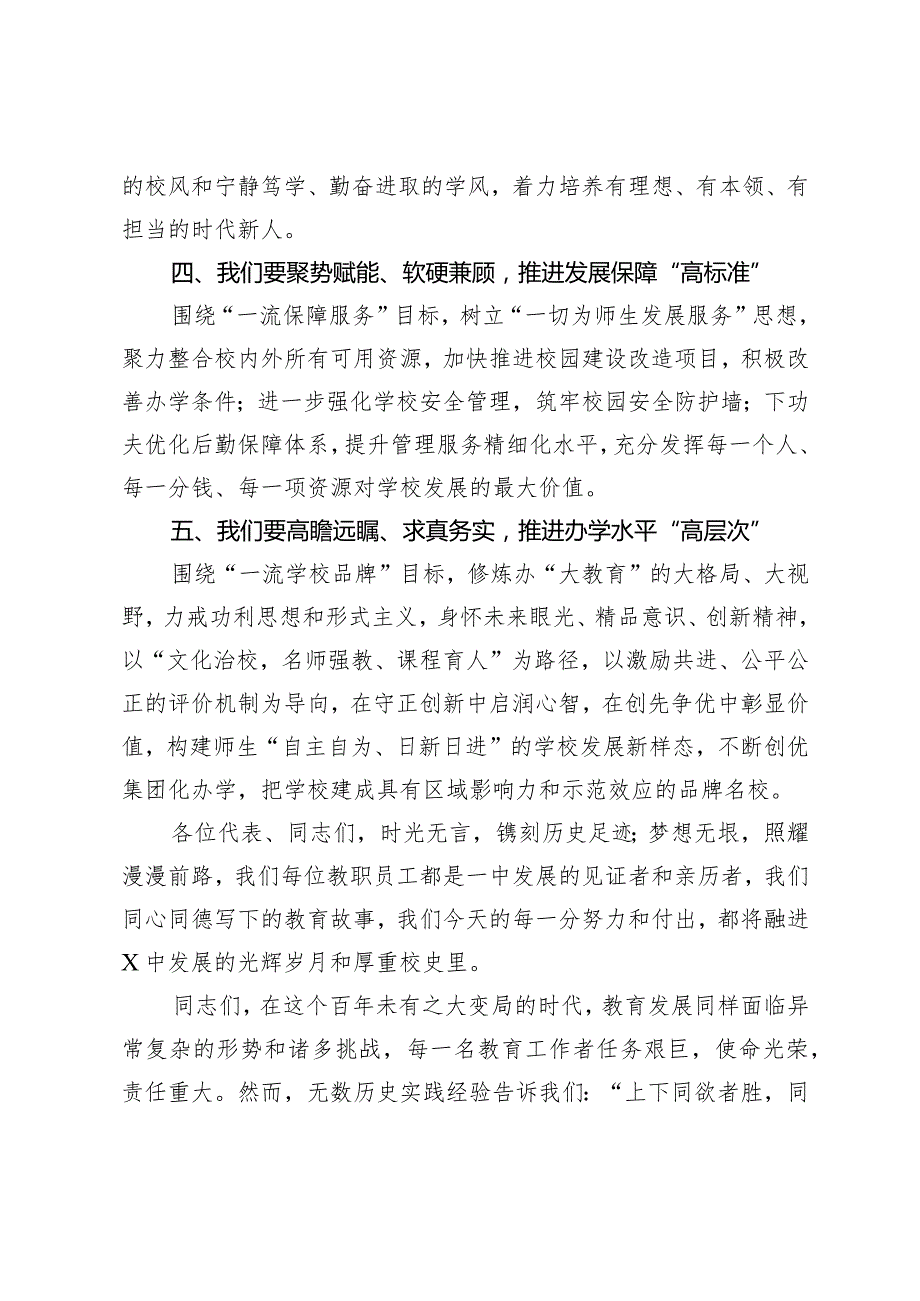 的校风和宁静笃学、勤奋进取的学风，着力培养有理想、有本领、有
担当的时代新人。
四、我们要聚势赋能、软硬兼顾，推进发展保障“高标准”
围绕“一流保障服务”目标，树立“一切为师生发展服务”思想，
聚力整合校内外所有可用资源，加快推进校园建设改造项目，积极改
善办学条件；进一步强化学校安全管理，筑牢校园安全防护墙；下功
夫优化后勤保障体系，提升管理服务精细化水平，充分发挥每一个人、
每一分钱、每一项资源对学校发展的最大价值。
五、我们要高瞻远瞩、求真务实，推进办学水平“高层次”
围绕“一流学校品牌”目标，修炼办“大教育”的大格局、大视
野，力戒功利思想和形式主义，身怀未来眼光、精品意识、创新精神，
以“文化治校，名师强教、课程育人”为路径，以激励共进、公平公
正的评价机制为导向，在守正创新中启润心智，在创先争优中彰显价
值，构建师生“自主自为、日新日进”的学校发展新样态，不断创优
集团化办学，把学校建成具有区域影响力和示范效应的品牌名校。
各位代表、同志们，时光无言，镌刻历史足迹；梦想无垠，照耀
漫漫前路，我们每位教职员工都是一中发展的见证者和亲历者，我们
同心同德写下的教育故事，我们今天的每一分努力和付出，都将融进
X中发展的光辉岁月和厚重校史里。
同志们，在这个百年未有之大变局的时代，教育发展同样面临异
常复杂的形势和诸多挑战，每一名教育工作者任务艰巨，使命光荣，
责任重大。然而，无数历史实践经验告诉我们：“上下同欲者胜，同